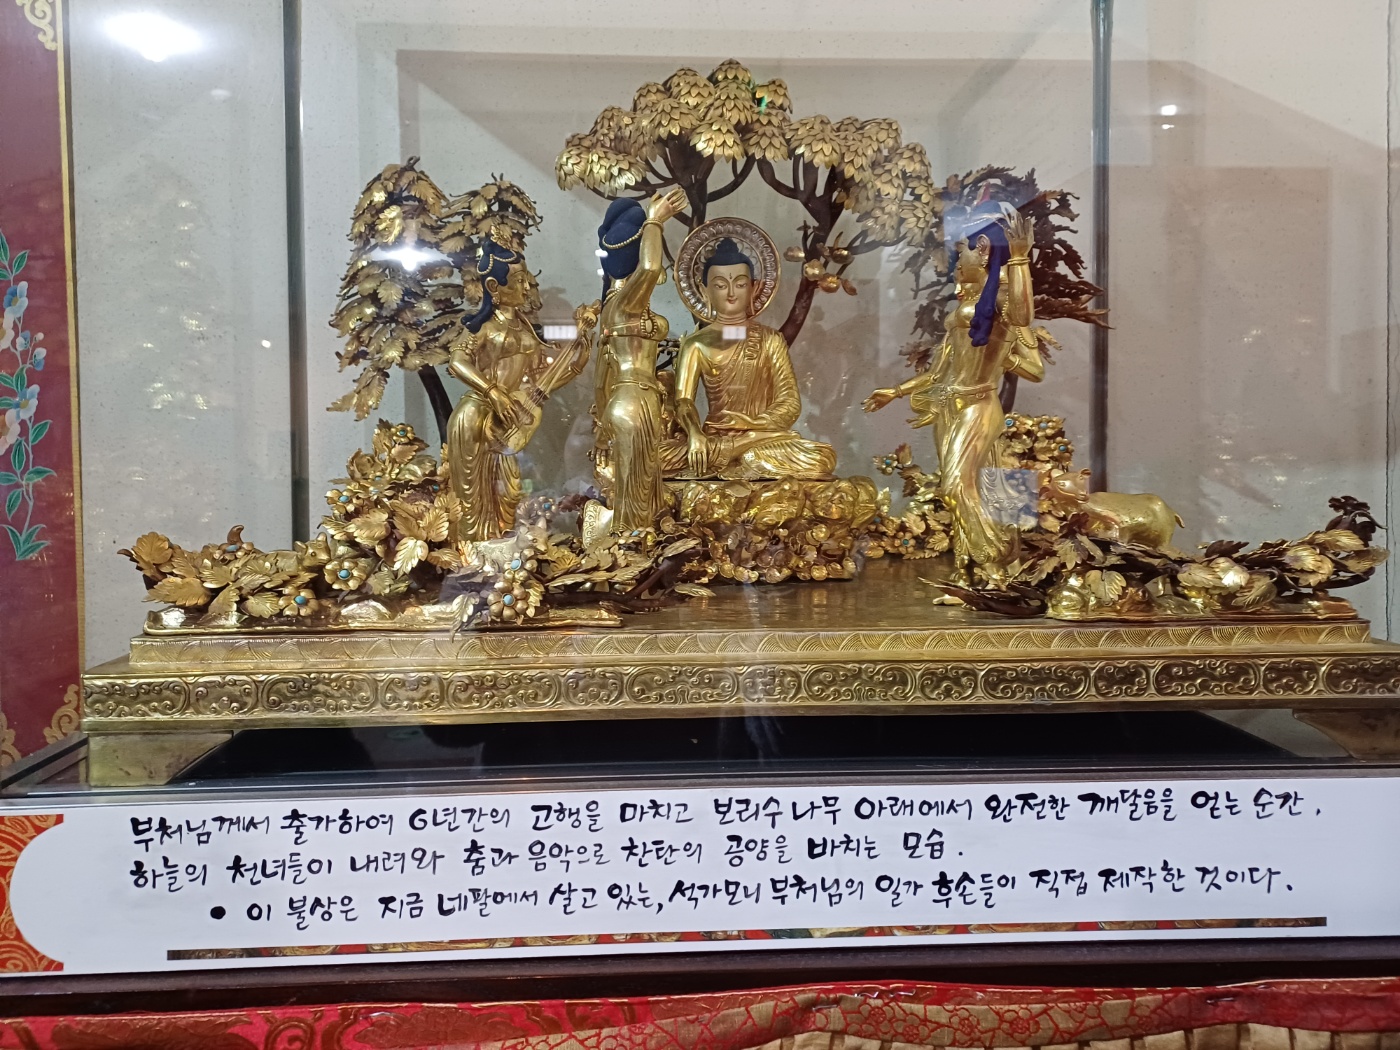 부처님께서 출가하여 6년간의 고행을 마치고 보리수 나무 아래에서 완전한 깨달음을 얻는 순간,
하늘의 천녀들이 내려와 춤과 음악으로 찬탄의 공양을 바치는 모습.
• 이 불상은 지금 네팔에서 살고 있는, 석가모니 부처님의 일가 후손들이 직접 제작한 것이다.